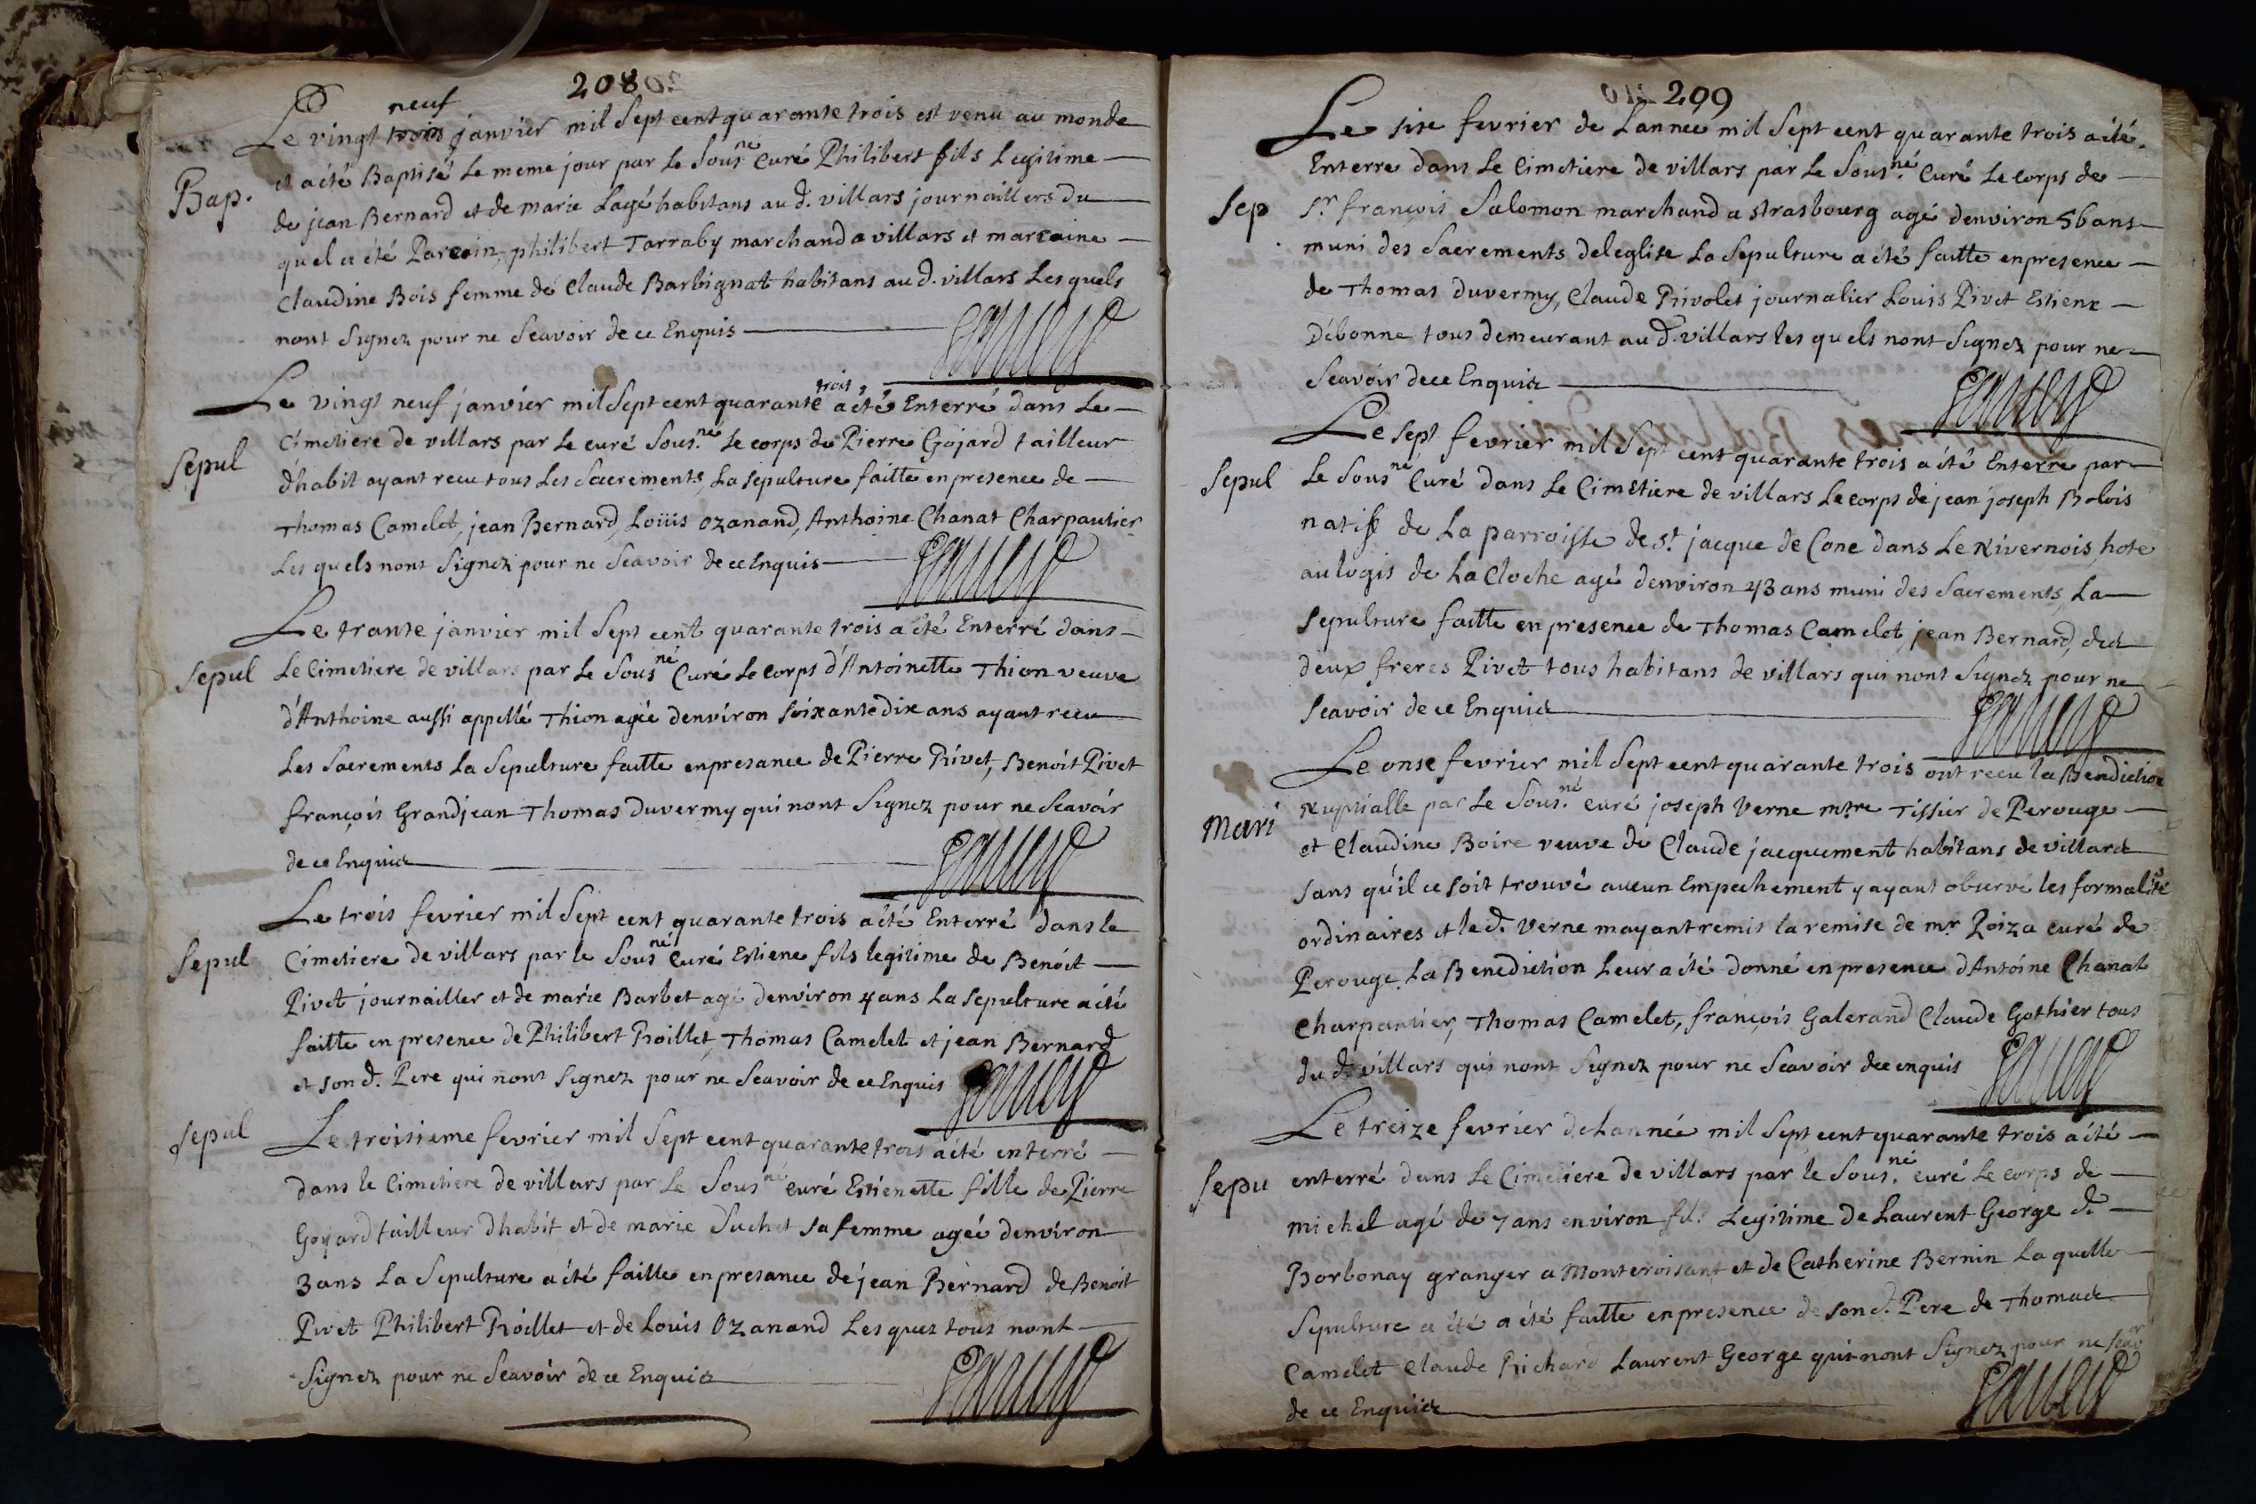 208
neuf
Le vingt trois janvier mil Sept cent quarante trois est venu au monde
Bap.
et a été Baptisé Le meme jour par Le Sous.né Curé Philibert fils Legitime
de jean Bernard et de marie Lagé habitans au d. villars journaillers du
quel a été Parrain philibert Tarraby marchand a villars et marraine
Claudine Bois femme de Claude Barbignat habitans au d. villars Lesquels
nont Signez pour ne Scavoir de ce Enquis
Le vingt neuf janvier mil Sept cent quarante trois a été Enterré dans Le
Sepul
Cimetiere de villars par Le curé Sous.né Le corps de Pierre Gojard tailleur
d'habit ayant recu tous Les Sacrements, La sepulture faitte en presence de
Thomas Camelet, jean Bernard, Loüis Ozanand, Anthoine Chanat Charpautier
Les quels nont Signez pour ne Scavoir de ce Enquis
Le trante janvier mil Sept cent quarante trois a été Enterré dans
Sepul
Le Cimetiere de villars par Le Sousné Curé Le corps d'Antoinette Thion veuve
d'Anthoine aussi appellé Thion agée denviron soixante dix ans ayant recu
Les Sacrements La Sepulture faitte en presance de Pierre Rivet, Benoit Pivet
françois Grandjean Thomas Duvermy qui nont Signez pour ne Scavoir
de ce Enquis
Le trois fevrier mil Sept cent quarante trois a été Enterré dans le
Sepul
Cimetiere de villars par le Sousné Curé Estiene fils legitime de Benoit
Pivet journailler et de marie Barbet agé denviron 4 ans La sepulture a été
faitte en presence de Philibert Roillet, Thomas Camelet et jean Bernard
et son d. Pere qui nont signez pour ne Scavoir de ce Enquis
Sepul
Le troisieme fevrier mil Sept cent quarante trois a été enterré
dans le Cimetiere de villars par Le Sousné curé Estienette fille de Pierre
Goyard tailleur dhabit et de marie Suchet sa femme agée denviron
3 ans La Sepulture a été faitte en presance de jean Bernard de Benoit
Pivet Philibert Roillet et de Louis Ozanand Lesquez tous nont
Signez pour ne Scavoir de ce Enquis
209
Le sixe fevrier de Lannee mil Sept cent quarante trois a été
Enterre dans Le Cimetiere de villars par Le Sous.né Curé Le corps de
Sep
Sr. françois Salomon marchand a strasbourg agé denviron 56 ans
muni des Sacrements de leglise La Sepulture a été faitte en presence
de Thomas Duvermy, Claude Rivolet journalier Louis Pivet Estiene
Debonne tous demeurant au d. villars les quels nont Signez pour ne
Scavoir de ce Enquis
Le sept fevrier mil Sept cent quarante trois a été Enterre par
Sepul
Le Sousné Curé dans Le Cimetiere de villars Le corps de jean joseph Blois
natif de La parroisse de St. jacque de Cone dans Le Nivernois, hote
au logis de La Cloche agé denviron 43 ans muni des Sacrements, La
sepulture faitte en presence de Thomas Camelet, jean Bernard, des
deux freres Pivet tous habitans de villars qui nont Signez pour ne
Scavoir de ce Enquis
Le onse fevrier mil Sept cent quarante trois ont recu la Bendiction
Mari
Nuptialle par Le Sous.né curé joseph Verne mtre Tissier de Perouge
et Claudine Boire veuve de Claude jacquement habitans de villard
sans qu'il ce soit trouvé aucun Empechement y ayant observé les formalité
ordinaires et le d. Verne mayant remis la remise de mr Roiza curé de
Perouge La Benediction Leur a été donné en presence d'Antoine Chanat
Charpantier, Thomas Camelet, françois Galerand Claude Gothier tous
du d. villars qui nont Signez pour ne Scavoir de ce enquis
Le treize fevrier de Lannée mil Sept cent quarante trois a été
Sepu
enterré dans Le Cimetiere de villars par le Sous.né curé Le corps de
michel agé de 7 ans environ fils Legitime de Laurent George d.
Borbonay granger a Monteroisant et de Catherine Bernin La quelle
Sepulture a été a été faitte en presence de son d. Pere de Thomas
Camelet Claude Richard Laurent George qui nont Signez pour ne Scav
de ce Enquis